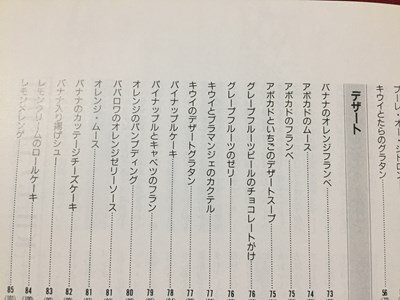 キウイとたらのグラタン……56
デザート
バナナのオレンジフランベ……73
アボカドのムース……74
アボカドのフランベ……75
アボカドといちごのデザートスープ……75
グレープフルーツピールのチョコレートがけ……76
グレープフルーツのゼリー……76
キウイとブラマンジェのカクテル……77
キウイのデザートグラタン……77
パイナップルケーキ……78
パイナップルとキャベツのフラン……79
オレンジのパンプディング……80
ババロワのオレンジゼリーソース……81
オレンジ・ムース……81
バナナのカッテージチーズケーキ……82
バナナ入り揚げシュー……83
レモンクリームのロールケーキ……84
……85